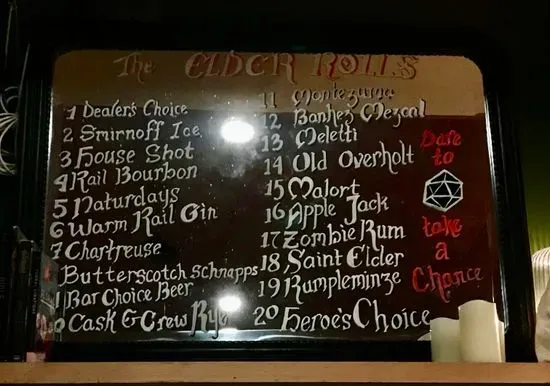 The ELDER ROLLS
1 Dealer's Choice
2 Smirnoff Ice
3 House Shot
4 Rail Bourbon
5 Naturdays
6 Warm Rail Gin
7 Chartreuse
Butterscotch Schnapps
Bar Choice Beer
Cask & Crew Rye
11 Montezuma
12 Banhez Mezcal
13 Meletti
14 Old Overholt
15 Malort
16 Apple Jack
17 Zombie Rum
18 Saint Elder
19 Rumpleminze
20 Heroe's Choice
Dare
to
take
a
Chance